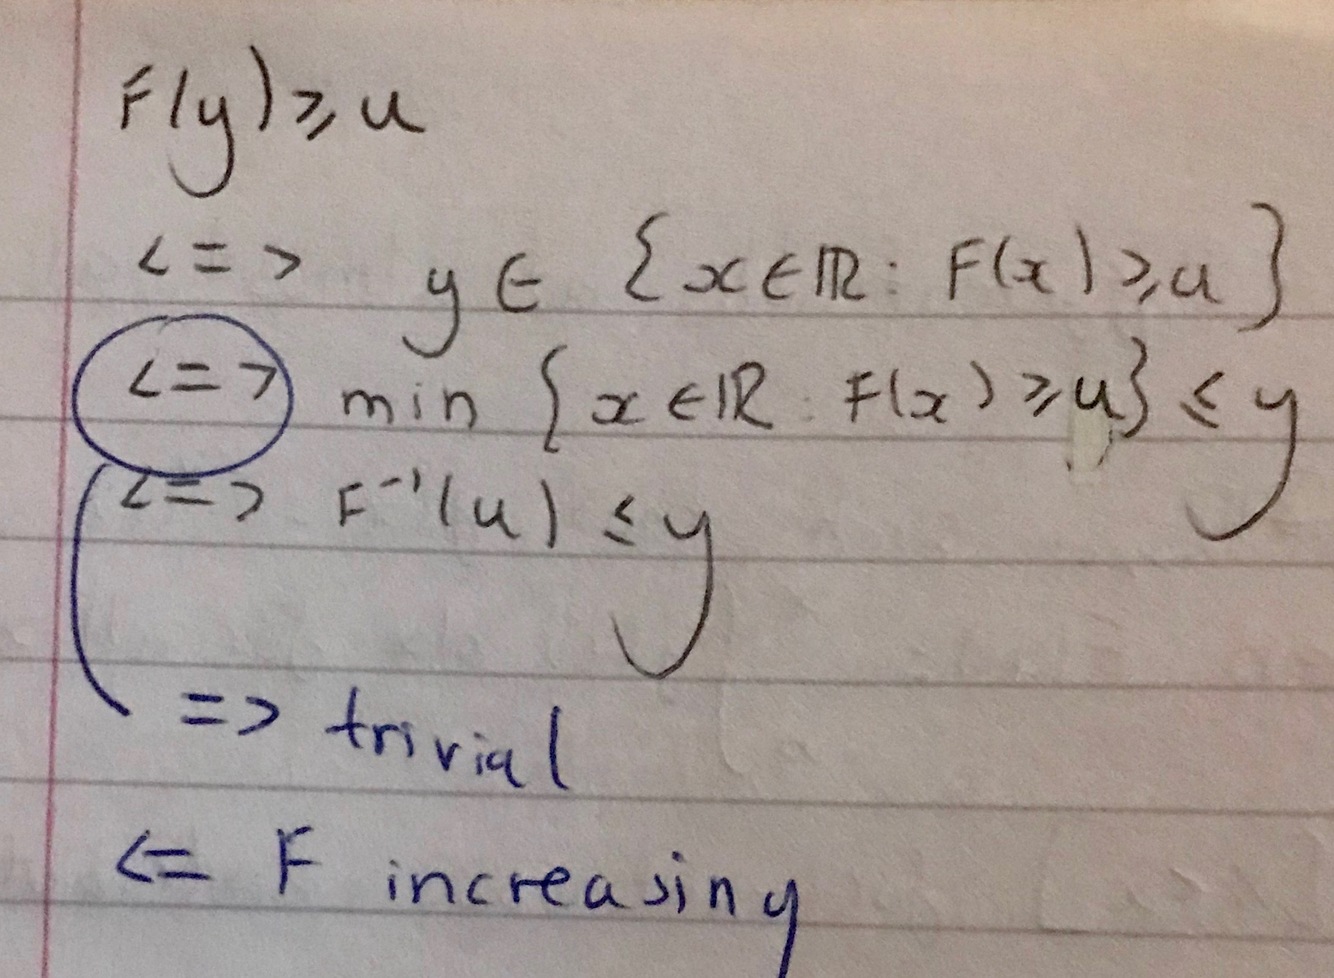 F(y) ≥ u
<=> y ∈ {x ∈ ℝ : F(x) ≥ u}
<=> min {x ∈ ℝ : F(x) ≥ u} ≤ y
<=> F⁻¹(u) ≤ y
=> trivial
<= F increasing